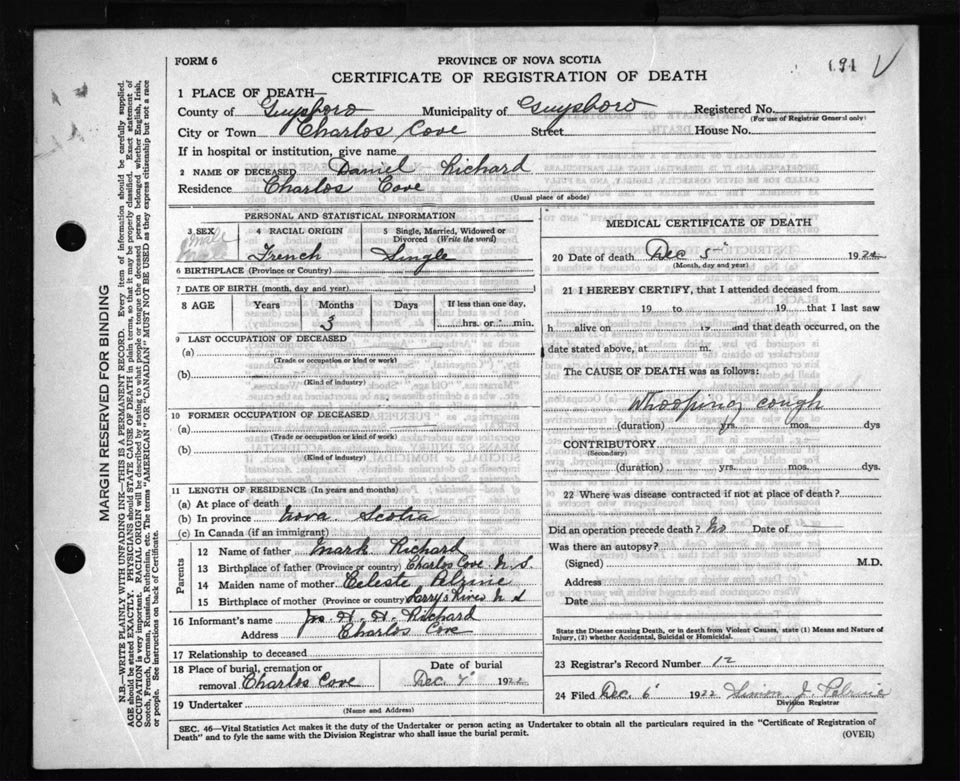 FORM 6
PROVINCE OF NOVA SCOTIA
CERTIFICATE OF REGISTRATION OF DEATH
1 PLACE OF DEATH—
County of Guysboro Municipality of Guysboro Registered No.
(For use of Registrar General only)
City or Town Charlos Cove Street House No.
If in hospital or institution, give name
2 NAME OF DECEASED Daniel Richard
Residence Charlos Cove
(Usual place of abode)
PERSONAL AND STATISTICAL INFORMATION
3 SEX 4 RACIAL ORIGIN 5 Single, Married, Widowed or Divorced (Write the word)
male
male French Single
6 BIRTHPLACE (Province or Country)
7 DATE OF BIRTH (month, day and year)
8 AGE Years Months Days If less than one day,
3 hrs. or min.
9 LAST OCCUPATION OF DECEASED
(a)
(Trade or occupation or kind or work)
(b)
(Kind of industry)
10 FORMER OCCUPATION OF DECEASED
(a)
(Trade or occupation or kind of work)
(b)
(Kind of industry)
11 LENGTH OF RESIDENCE (In years and months)
(a) At place of death
(b) In province Nova Scotia
(c) In Canada (if an immigrant)
Parents
12 Name of father Mark Richard
13 Birthplace of father (Province or country) Charlos Cove N.S.
14 Maiden name of mother Celeste Pelrine
15 Birthplace of mother (Province or country) Larry's River N S
16 Informant's name H. H. Richard
Address Charlos Cove
17 Relationship to deceased
18 Place of burial, cremation or removal Charlos Cove Date of burial Dec 7 1922
19 Undertaker
(Name and Address)
MEDICAL CERTIFICATE OF DEATH
20 Date of death Dec 5 1922
(Month, day and year)
21 I HEREBY CERTIFY, that I attended deceased from
19 to 19 that I last saw
h alive on 19 and that death occurred, on the
date stated above, at m.
The CAUSE OF DEATH was as follows:
Whooping cough
(duration) yrs. mos. dys
CONTRIBUTORY
(Secondary)
(duration) yrs. mos. dys.
22 Where was disease contracted if not at place of death?
Did an operation precede death? No Date of
Was there an autopsy?
(Signed) M.D.
Address
Date
State the Disease causing Death, or in death from Violent Causes, state (1) Means and Nature of
Injury, (2) whether Accidental, Suicidal or Homicidal.
23 Registrar's Record Number 12
24 Filed Dec 6 1922 Simon J. Pelrine
Division Registrar
SEC. 46—Vital Statistics Act makes it the duty of the Undertaker or person acting as Undertaker to obtain all the particulars required in the "Certificate of Registration of
Death" and to fyle the same with the Division Registrar who shall issue the burial permit.
(OVER)
MARGIN RESERVED FOR BINDING
N.B.—WRITE PLAINLY WITH UNFADING INK—THIS IS A PERMANENT RECORD. Every item of information should be carefully supplied.
AGE should be stated EXACTLY. PHYSICIANS should STATE CAUSE OF DEATH in plain terms, so that it may be properly classified. Exact statement of
OCCUPATION is very important. RACIAL ORIGIN will be described by stating to what people or tongue the deceased person belonged whether English, Irish,
Scotch, French, German, Russian, Ruthenian, etc. The terms "AMERICAN" OR "CANADIAN" MUST NOT BE USED as they express citizenship but not a race
or people. See instructions on back of Certificate.